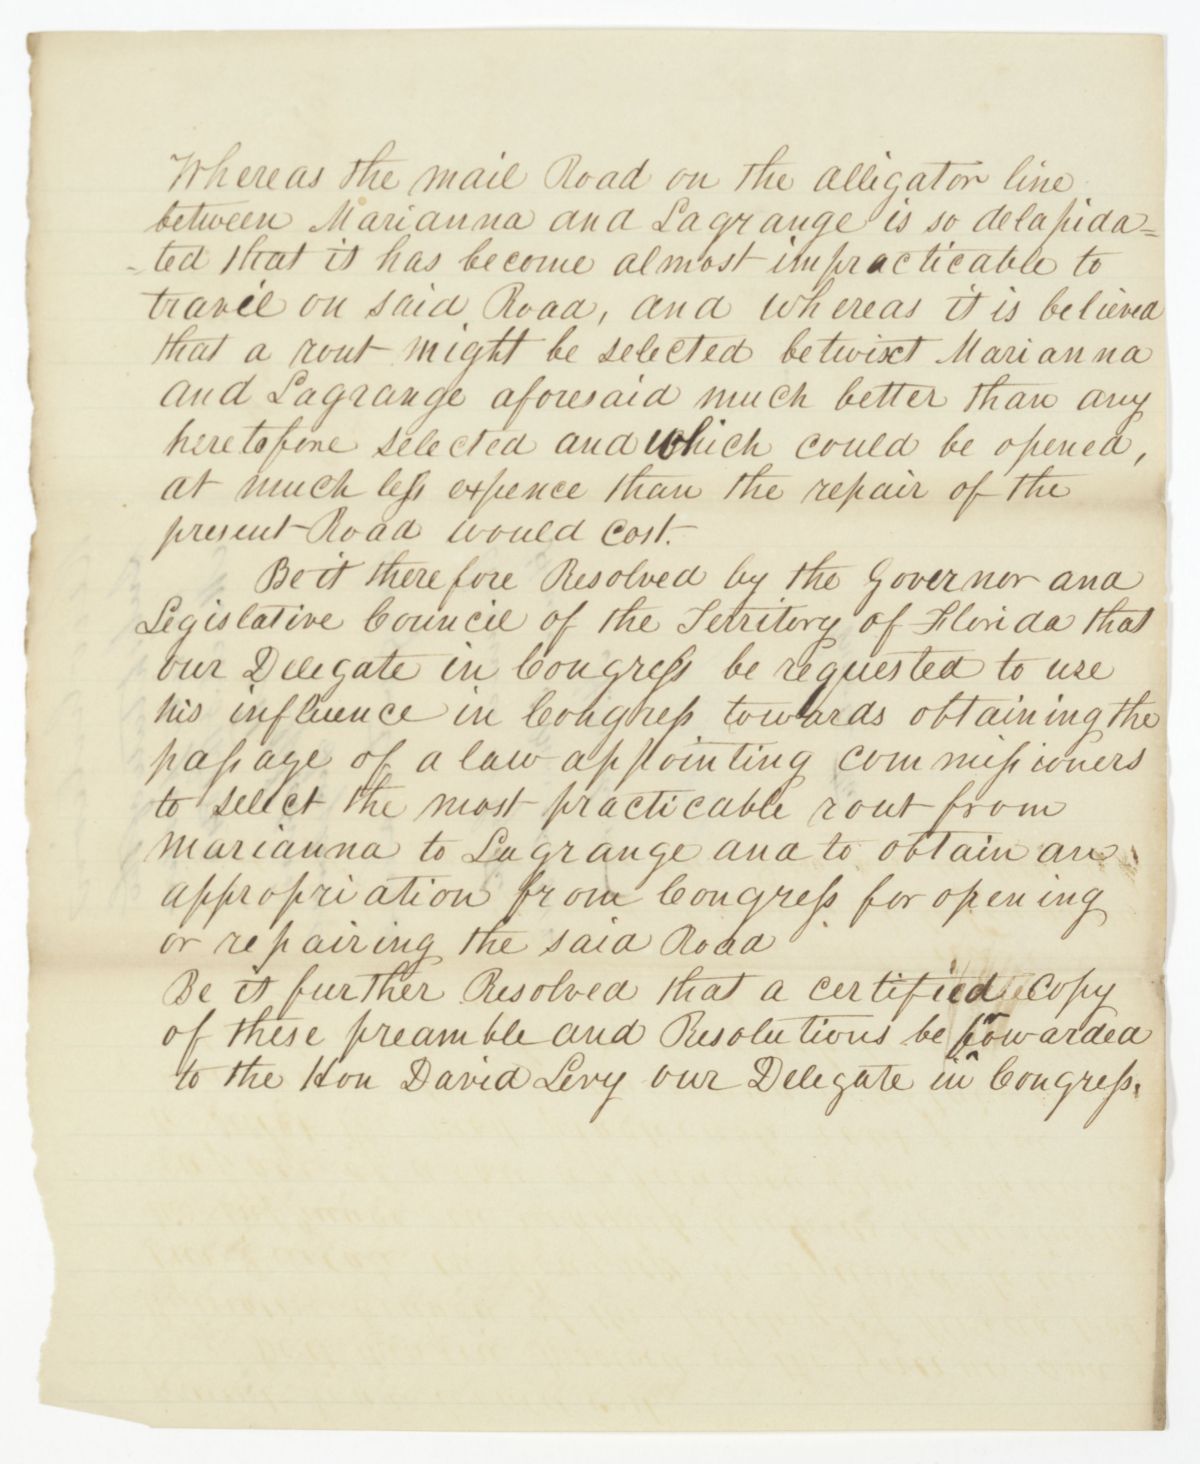 Whereas the mail Road on the alligator line
between Marianna and Lagrange is so delapida=
-ted that it has become almost impracticable to
travel on said Road, and whereas it is believed
that a rout might be selected betwixt Marianna
and Lagrange aforesaid much better than any
heretofore selected and which could be opened,
at much less expence than the repair of the
present Road would cost.
Be it therefore Resolved by the Governor and
Legislative Council of the Territory of Florida that
our Delegate in Congress be requested to use
his influence in Congress towards obtaining the
passage of a law appointing commissioners
to select the most practicable rout from
Marianna to Lagrange and to obtain an
appropriation from Congress for opening
or repairing the said Road
Be it further Resolved that a certified Copy
of these preamble and Resolutions be forwarded
to the Hon David Levy our Delegate in Congress.